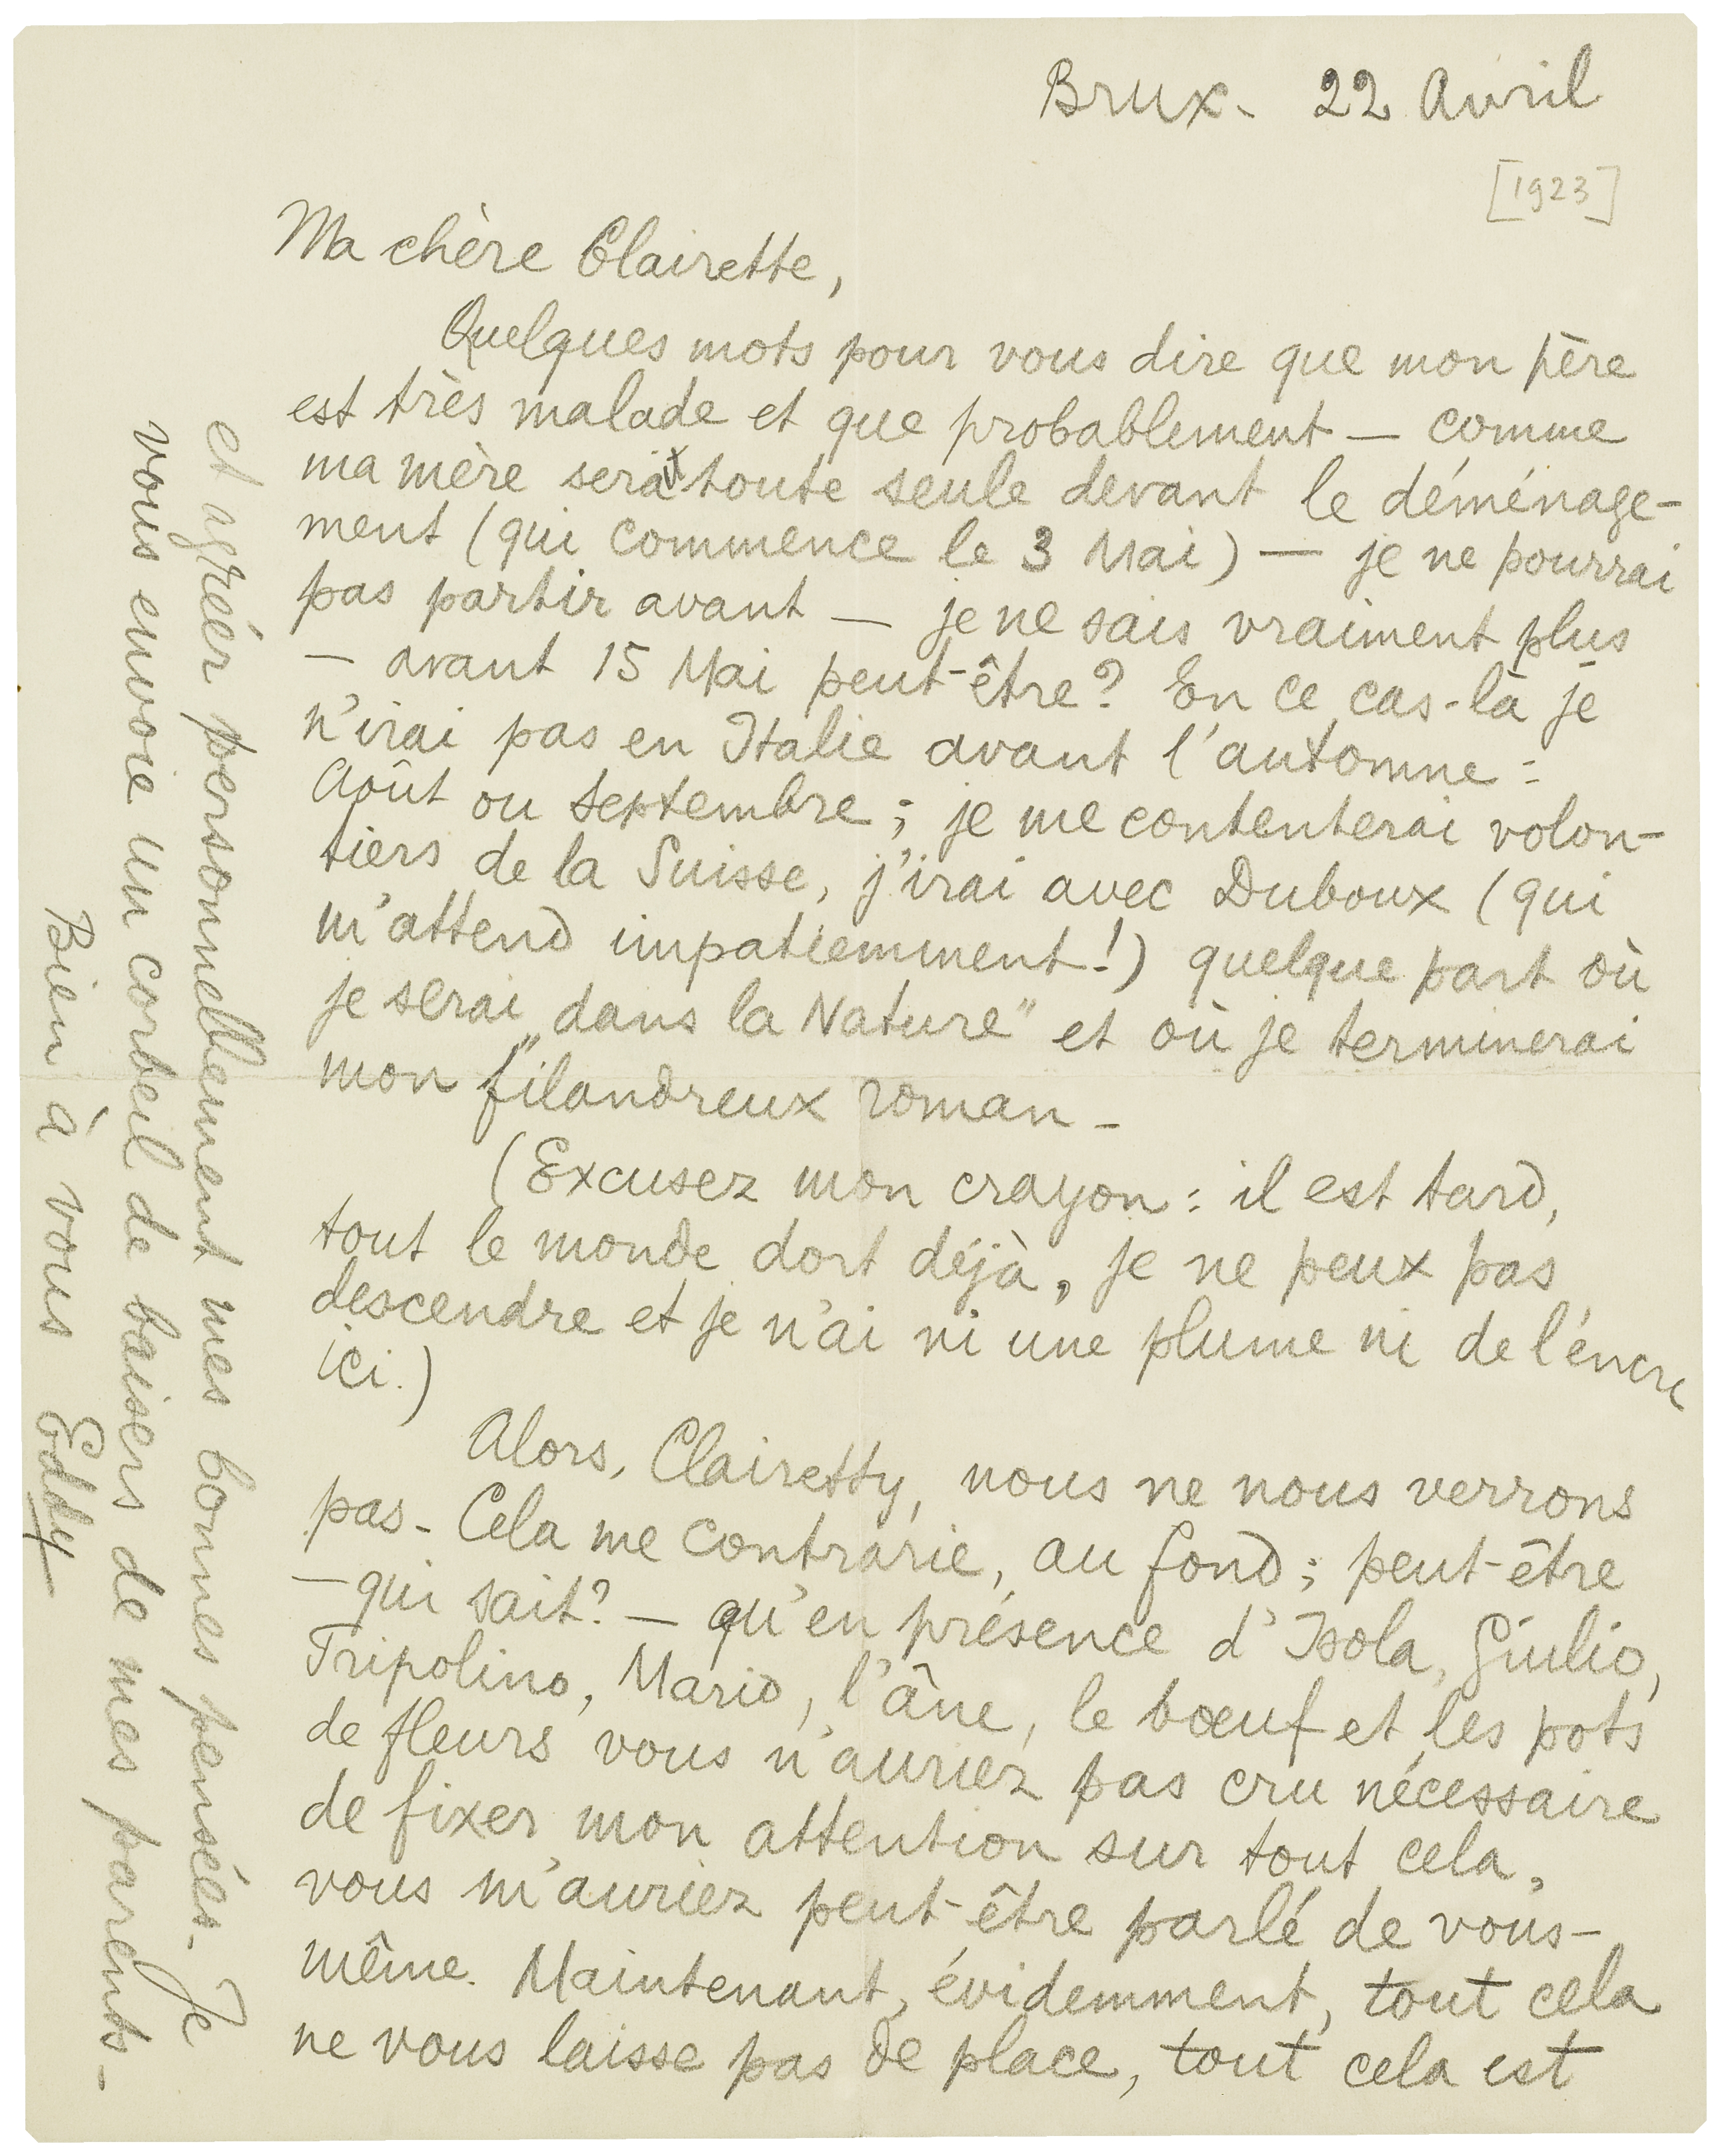 Brux- 22 Avril
[1923]
Ma chère Clairette,
Quelques mots pour vous dire que mon père
est très malade et que probablement — comme
ma mère sera toute seule devant le déménage-
ment (qui commence le 3 Mai) — je ne pourrai
pas partir avant — je ne sais vraiment plus
— avant 15 Mai peut-être? En ce cas-là je
n'irai pas en Italie avant l'automne :
Août ou Septembre ; je me contenterai volon-
tiers de la Suisse, j'irai avec Duboux (qui
m'attend impatiemment!) quelque part où
je serai „dans la Nature" et où je terminerai
mon filandreux roman -
(Excusez mon crayon : il est tard,
tout le monde dort déjà, je ne peux pas
descendre et je n'ai ni une plume ni de l'encre
ici.)
Alors, Clairetty, nous ne nous verrons
pas - Cela me contrarie, au fond ; peut-être
— qui sait? — qu'en présence d'Isola, Giulio,
Tripolino, Mario, l'âne, le bœuf et les pots
de fleurs vous n'auriez pas cru nécessaire
de fixer mon attention sur tout cela,
vous m'auriez peut-être parlé de vous-
même. Maintenant, évidemment, tout cela
ne vous laisse pas de place, tout cela est
et agréer personnellement mes bonnes pensées - Je
vous envoie un corbeil de baisers de mes parents -
Bien à vous Eddy